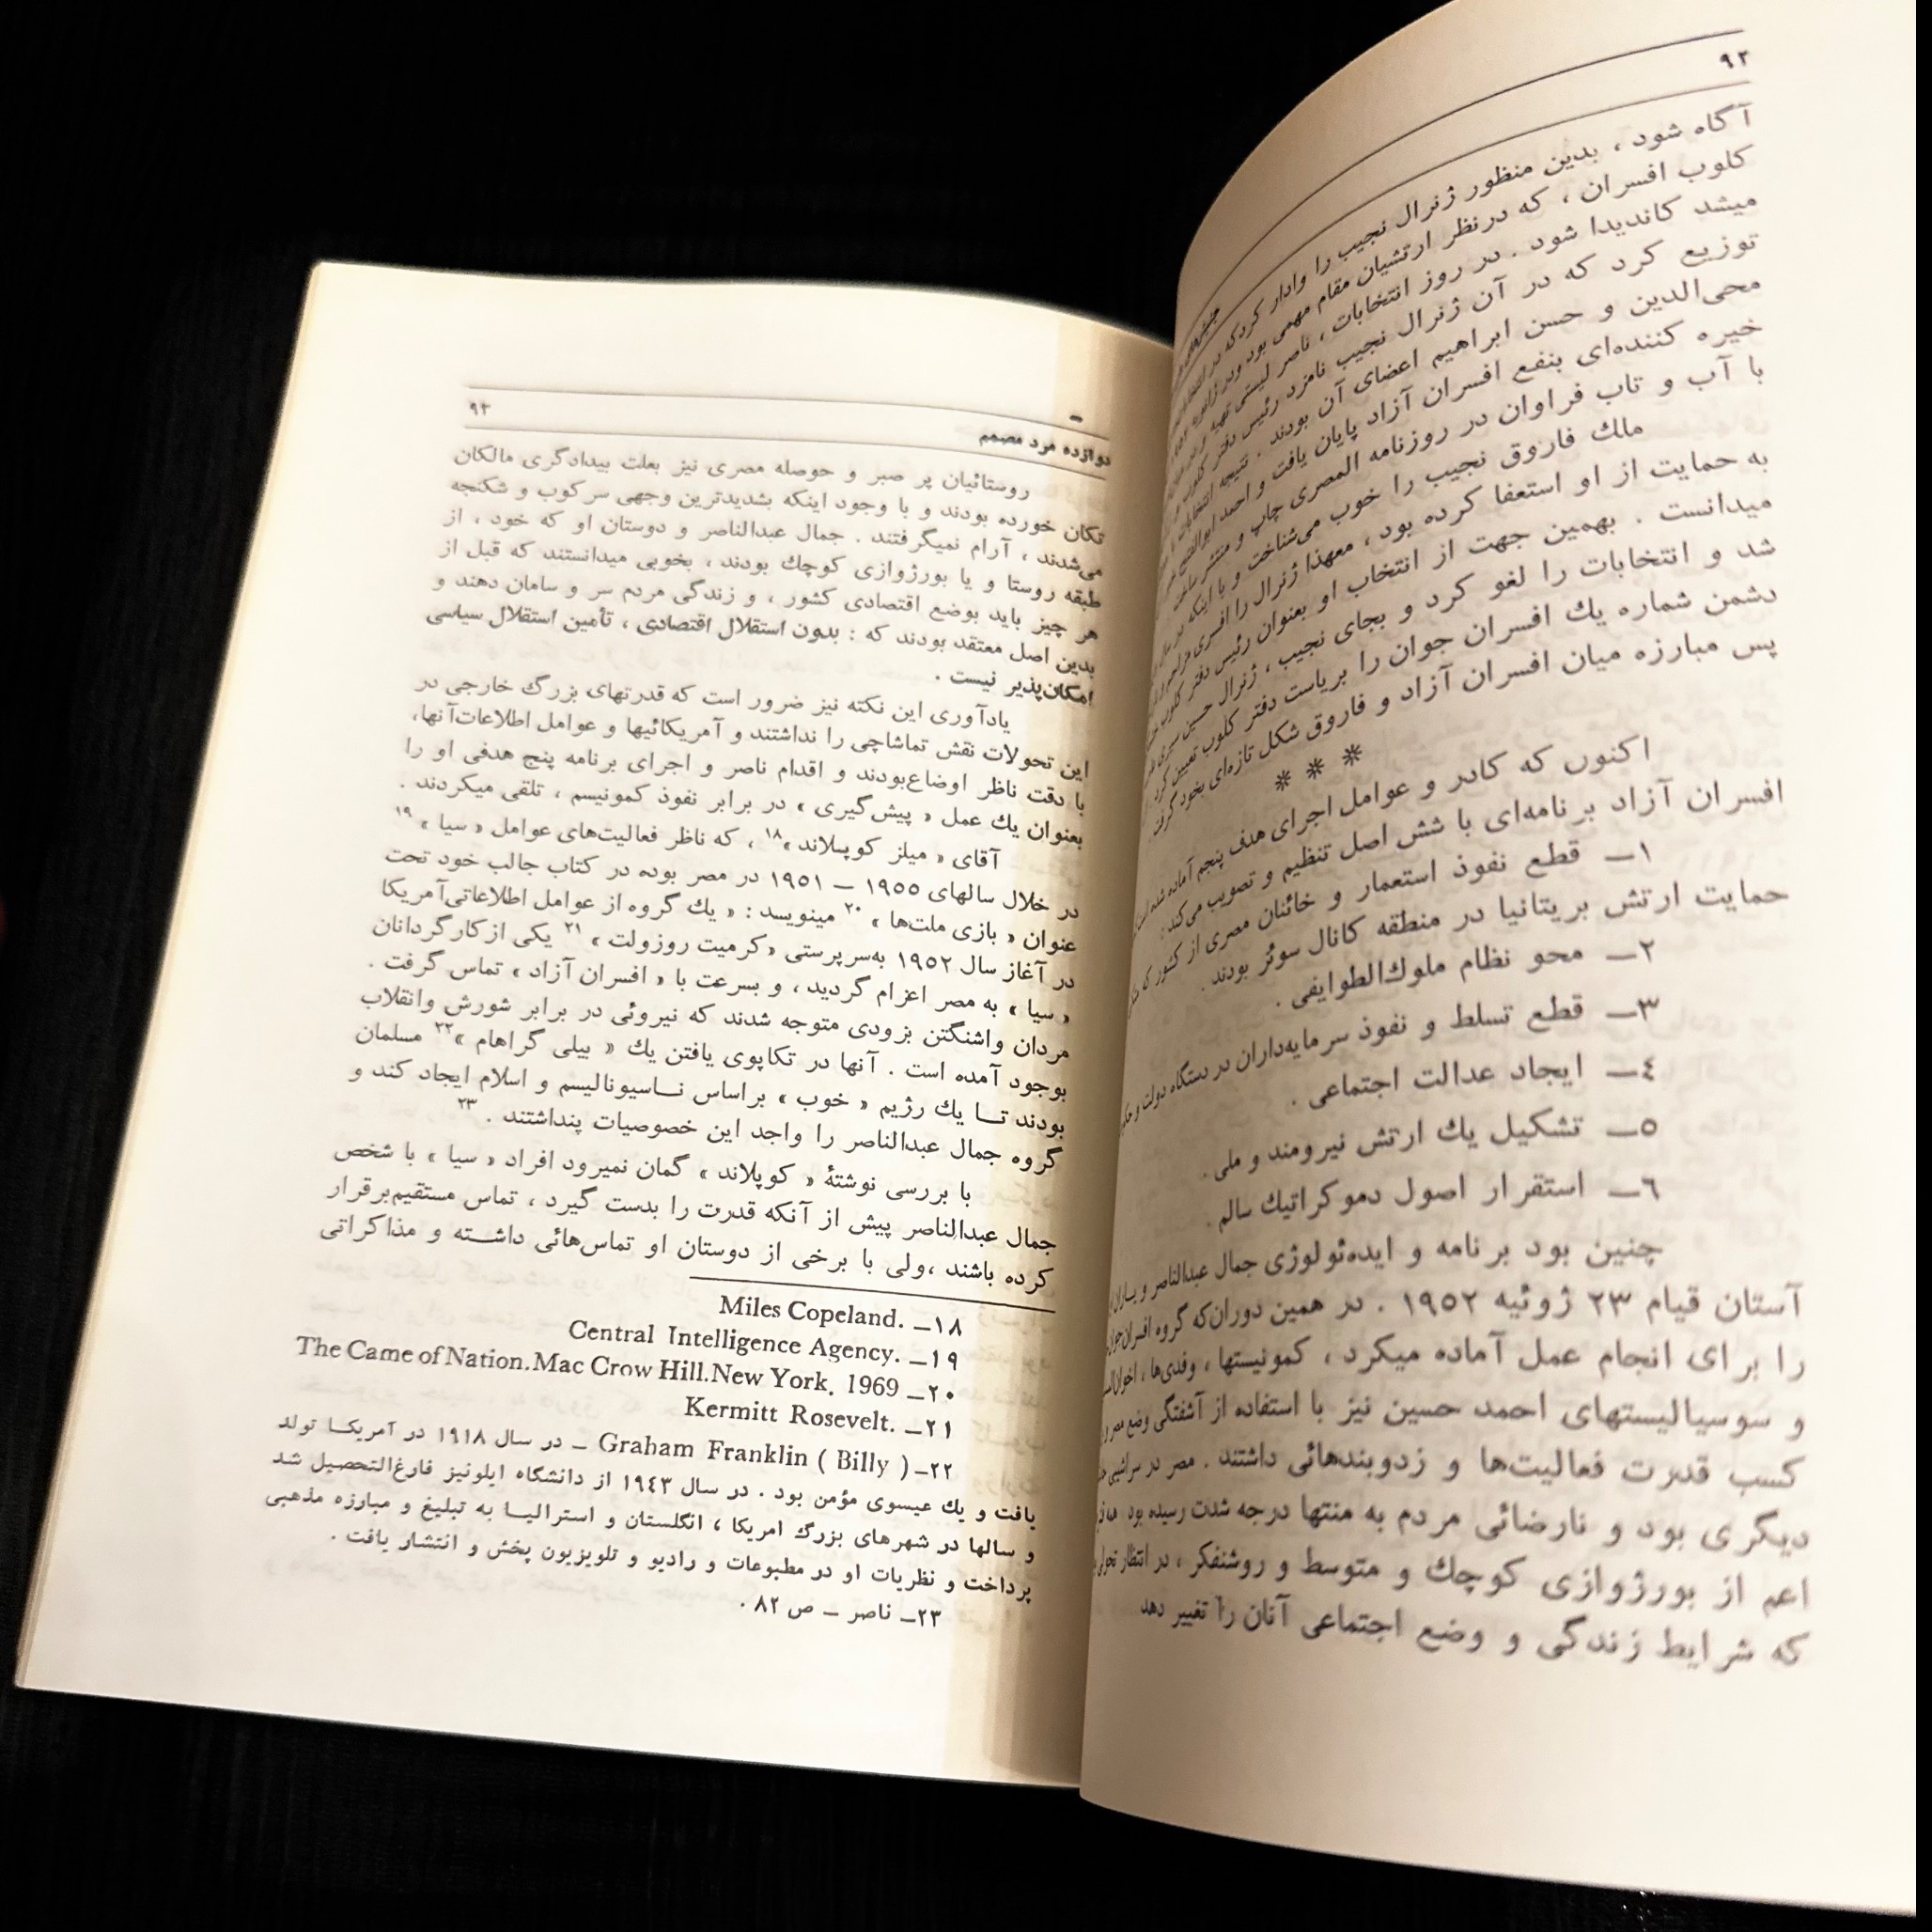 ۹۲
آگاه شود ، بدین منظور ژنرال نجیب را وادار کرد که در
کلوب افسران ، که در نظر ارتشیان مقام مهمی بود و در ژانویه
میشد کاندیدا شود . در روز انتخابات ، ناصر لیستی تهیه و در میان
توزیع کرد که در آن ژنرال نجیب نامزد رئیس دفتر کلوب و
محی‌الدین و حسن ابراهیم اعضای آن بودند . نتیجه انتخابات
خیره کننده‌ای بنفع افسران آزاد پایان یافت و احمد ابوالفتح
با آب و تاب فراوان در روزنامه المصری چاپ و منتشر ساخت .
ملك فاروق نجیب را خوب می‌شناخت و با اینکه در
به حمایت از او استعفا کرده بود ، معهذا ژنرال را افسری
میدانست . بهمین جهت از انتخاب او بعنوان رئیس دفتر کلوب
شد و انتخابات را لغو کرد و بجای نجیب ، ژنرال حسین سری
دشمن شماره یك افسران جوان را بریاست دفتر کلوب تعیین کرد
پس مبارزه میان افسران آزاد و فاروق شکل تازه‌ای بخود گرفت
* * *
اکنون که کادر و عوامل اجرای هدف پنجم آماده شده
افسران آزاد برنامه‌ای با شش اصل تنظیم و تصویب می‌کند :
۱ــ قطع نفوذ استعمار و خائنان مصری از کشور که
حمایت ارتش بریتانیا در منطقه کانال سوئز بودند .
۲ــ محو نظام ملوك‌الطوایفی .
۳ــ قطع تسلط و نفوذ سرمایه‌داران در دستگاه دولت و
٤ــ ایجاد عدالت اجتماعی .
٥ــ تشکیل یك ارتش نیرومند و ملی .
٦ــ استقرار اصول دموکراتیك سالم .
چنین بود برنامه و ایده‌ئولوژی جمال عبدالناصر و یاران
آستان قیام ۲۳ ژوئیه ۱۹٥۲ . در همین دوران‌که گروه افسران
را برای انجام عمل آماده میکرد ، کمونیستها ، وفدی‌ها ،
و سوسیالیستهای احمد حسین نیز با استفاده از آشفتگی وضع مصر و
کسب قدرت فعالیت‌ها و زدوبندهائی داشتند . مصر در سراشیبی
دیگری بود و نارضائی مردم به منتها درجه شدت رسیده بود
اعم از بورژوازی کوچك و متوسط و روشنفکر ، در انتظار تحولی
که شرایط زندگی و وضع اجتماعی آنان را تغییر دهد
دوازده مرد مصمم
۹۳
روستائیان پر صبر و حوصله مصری نیز بعلت بیدادگری مالکان
تکان خورده بودند و با وجود اینکه بشدیدترین وجهی سرکوب و شکنجه
می‌شدند ، آرام نمیگرفتند . جمال عبدالناصر و دوستان او که خود ، از
طبقه روستا و یا بورژوازی کوچك بودند ، بخوبی میدانستند که قبل از
هر چیز باید بوضع اقتصادی کشور ، و زندگی مردم سر و سامان دهند و
بدین اصل معتقد بودند که : بدون استقلال اقتصادی ، تأمین استقلال سیاسی
امکان‌پذیر نیست .
یادآوری این نکته نیز ضرور است که قدرتهای بزرگ خارجی در
این تحولات نقش تماشاچی را نداشتند و آمریکائیها و عوامل اطلاعات‌آنها،
با دقت ناظر اوضاع‌بودند و اقدام ناصر و اجرای برنامه پنج هدفی او را
بعنوان یك عمل « پیش‌گیری » در برابر نفوذ کمونیسم ، تلقی میکردند .
آقای « میلز کوپلاند »۱۸ ، که ناظر فعالیت‌های عوامل « سیا »۱۹
در خلال سالهای ۱۹٥٥ ــ ۱۹٥۱ در مصر بوده در کتاب جالب خود تحت
عنوان « بازی ملت‌ها »۲۰ مینویسد : « یك گروه از عوامل اطلاعاتی‌آمریکا
در آغاز سال ۱۹٥۲ به‌سرپرستی «کرمیت روزولت »۲۱ یکی ازکارگردانان
« سیا » به مصر اعزام گردید ، و بسرعت با « افسران آزاد » تماس گرفت .
مردان واشنگتن بزودی متوجه شدند که نیروئی در برابر شورش وانقلاب
بوجود آمده است . آنها در تکاپوی یافتن یك « بیلی گراهام »۲۲ مسلمان
بودند تــا یك رژیم « خوب » براساس نــاسیونالیسم و اسلام ایجاد کند و
گروه جمال عبدالناصر را واجد این خصوصیات پنداشتند . ۲۳
با بررسی نوشتهٔ « کوپلاند » گمان نمیرود افراد « سیا » با شخص
جمال عبدالناصر پیش از آنکه قدرت را بدست گیرد ، تماس مستقیم‌برقرار
کرده باشند ،ولی با برخی از دوستان او تماس‌هائی داشــته و مذاکراتی
۱۸ــ Miles Copeland.
۱۹ــ Central Intelligence Agency.
۲۰ــ The Came of Nation.Mac Crow Hill.New York. 1969
۲۱ــ Kermitt Rosevelt.
۲۲ــ Graham Franklin ( Billy ) ــ در سال ۱۹۱۸ در آمریکــا تولد
یافت و یك عیسوی مؤمن بود . در سال ۱۹٤۳ از دانشگاه ایلونیز فارغ‌التحصیل شد
و سالها در شهرهای بزرگ امریکا ، انگلستان و استرالیــا به تبلیغ و مبارزه مذهبی
پرداخت و نظریات او در مطبوعات و رادیو و تلویزیون پخش و انتشار یافت .
۲۳ــ ناصر ــ ص ۸۲ .